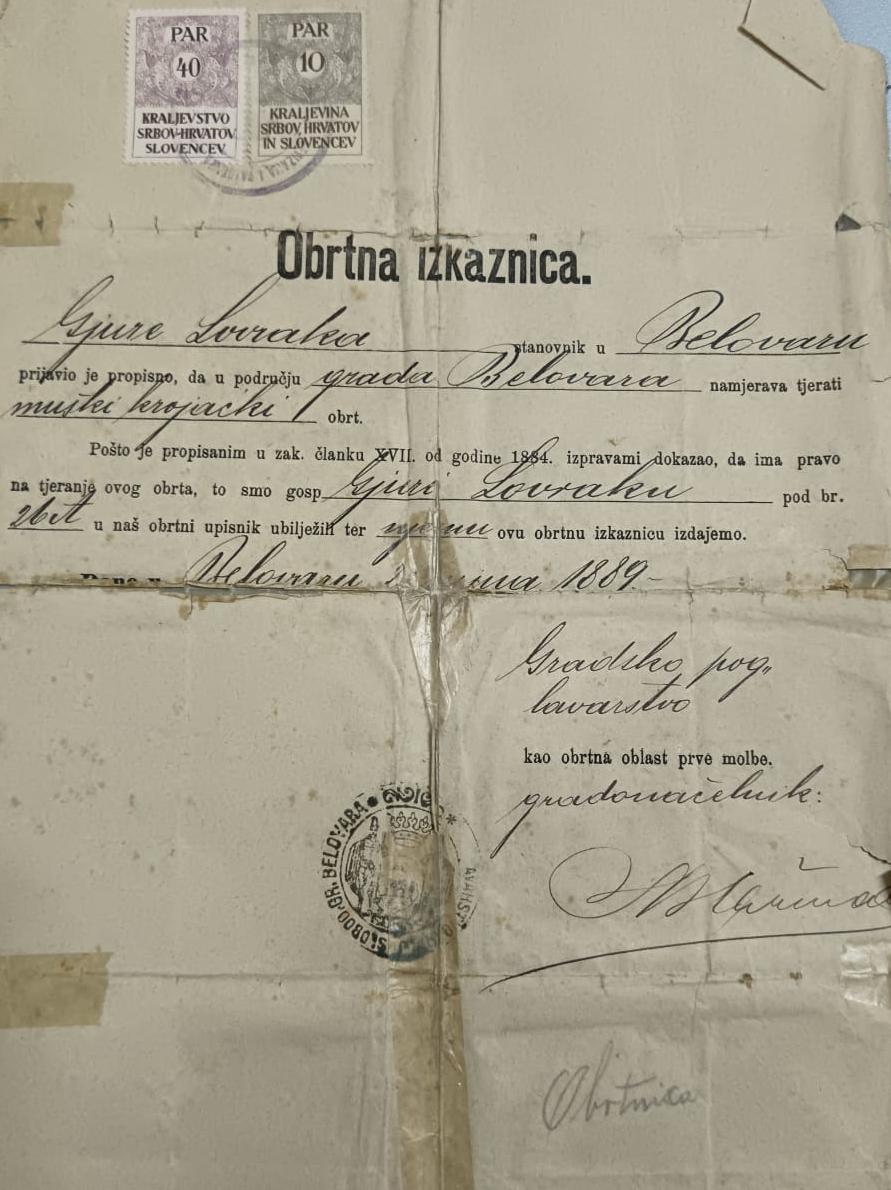 PAR
40
KRALJEVSTVO
SRBOV-HRVATOV
SLOVENCEV
PAR
10
KRALJEVINA
SRBOV, HRVATOV
IN SLOVENCEV
Obrtna izkaznica.
Gjure Lovraka stanovnik u Belovaru
prijavio je propisno, da u području grada Belovara namjerava tjerati
muški krojački obrt.
Pošto je propisanim u zak. članku XVII. od godine 1884. izpravami dokazao, da ima pravo
na tjeranje ovog obrta, to smo gosp Gjuri Lovraku pod br.
26 u naš obrtni upisnik ubilježili ter njemu ovu obrtnu izkaznicu izdajemo.
Dano u Belovaru 2 1889-
Gradsko pog„
lavarstvo
kao obrtna oblast prve molbe.
gradonačelnik:
SLOBOD. GR. BELOVARA
Obrtnica